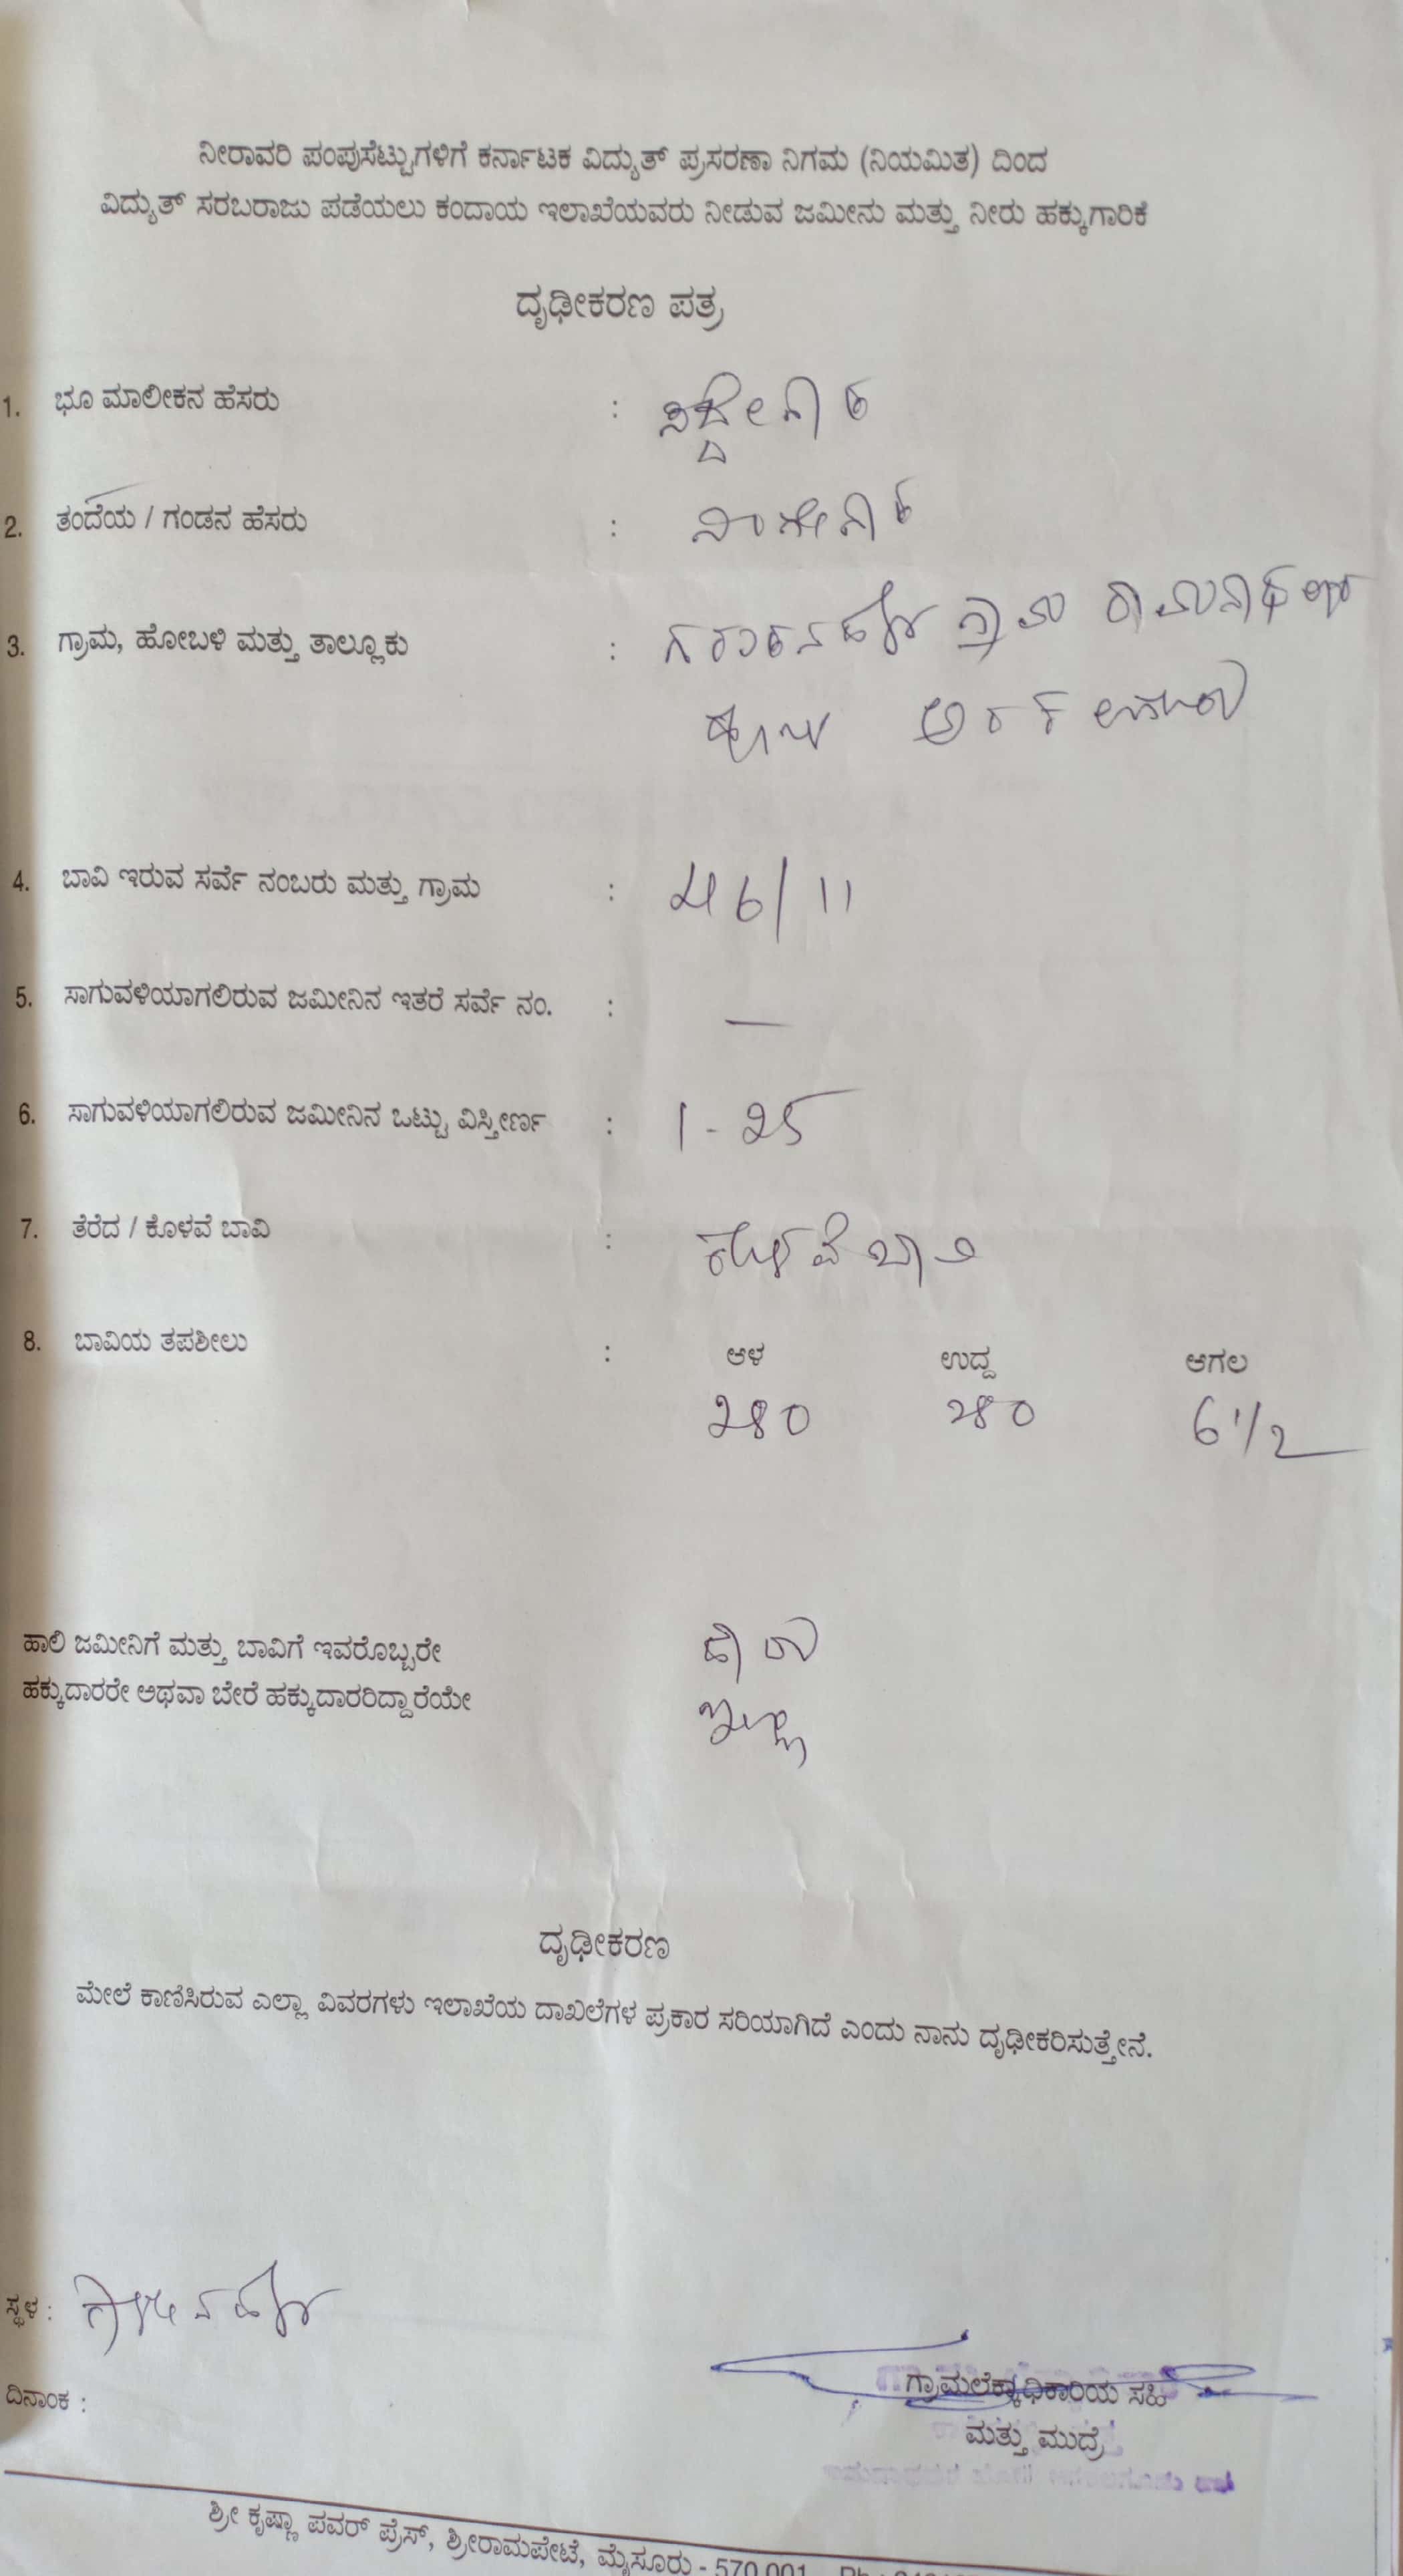 ನೀರಾವರಿ ಪಂಪುಸೆಟ್ಟುಗಳಿಗೆ ಕರ್ನಾಟಕ ವಿದ್ಯುತ್ ಪ್ರಸರಣಾ ನಿಗಮ (ನಿಯಮಿತ) ದಿಂದ
ವಿದ್ಯುತ್ ಸರಬರಾಜು ಪಡೆಯಲು ಕಂದಾಯ ಇಲಾಖೆಯವರು ನೀಡುವ ಜಮೀನು ಮತ್ತು ನೀರು ಹಕ್ಕುಗಾರಿಕೆ
ದೃಢೀಕರಣ ಪತ್ರ
1. ಭೂ ಮಾಲೀಕನ ಹೆಸರು :
2. ತಂದೆಯ / ಗಂಡನ ಹೆಸರು :
3. ಗ್ರಾಮ, ಹೋಬಳಿ ಮತ್ತು ತಾಲ್ಲೂಕು : ಗ್ರಾಮ
4. ಬಾವಿ ಇರುವ ಸರ್ವೆ ನಂಬರು ಮತ್ತು ಗ್ರಾಮ : 46/11
5. ಸಾಗುವಳಿಯಾಗಲಿರುವ ಜಮೀನಿನ ಇತರೆ ಸರ್ವೆ ನಂ. : —
6. ಸಾಗುವಳಿಯಾಗಲಿರುವ ಜಮೀನಿನ ಒಟ್ಟು ವಿಸ್ತೀರ್ಣ : 1-25
7. ತೆರೆದ / ಕೊಳವೆ ಬಾವಿ : ಕೊಳವೆ ಬಾವಿ
8. ಬಾವಿಯ ತಪಶೀಲು : ಆಳ ಉದ್ದ ಅಗಲ
280 280 6 1/2
ಹಾಲಿ ಜಮೀನಿಗೆ ಮತ್ತು ಬಾವಿಗೆ ಇವರೊಬ್ಬರೇ ಹೌದು
ಹಕ್ಕುದಾರರೇ ಅಥವಾ ಬೇರೆ ಹಕ್ಕುದಾರರಿದ್ದಾರೆಯೇ ಇಲ್ಲ
ದೃಢೀಕರಣ
ಮೇಲೆ ಕಾಣಿಸಿರುವ ಎಲ್ಲಾ ವಿವರಗಳು ಇಲಾಖೆಯ ದಾಖಲೆಗಳ ಪ್ರಕಾರ ಸರಿಯಾಗಿದೆ ಎಂದು ನಾನು ದೃಢೀಕರಿಸುತ್ತೇನೆ.
ಸ್ಥಳ :
ದಿನಾಂಕ :
ಗ್ರಾಮಲೆಕ್ಕಾಧಿಕಾರಿಯ ಸಹಿ
ಮತ್ತು ಮುದ್ರೆ
ಶ್ರೀ ಕೃಷ್ಣಾ ಪವರ್ ಪ್ರೆಸ್, ಶ್ರೀರಾಮಪೇಟೆ, ಮೈಸೂರು - 570 001